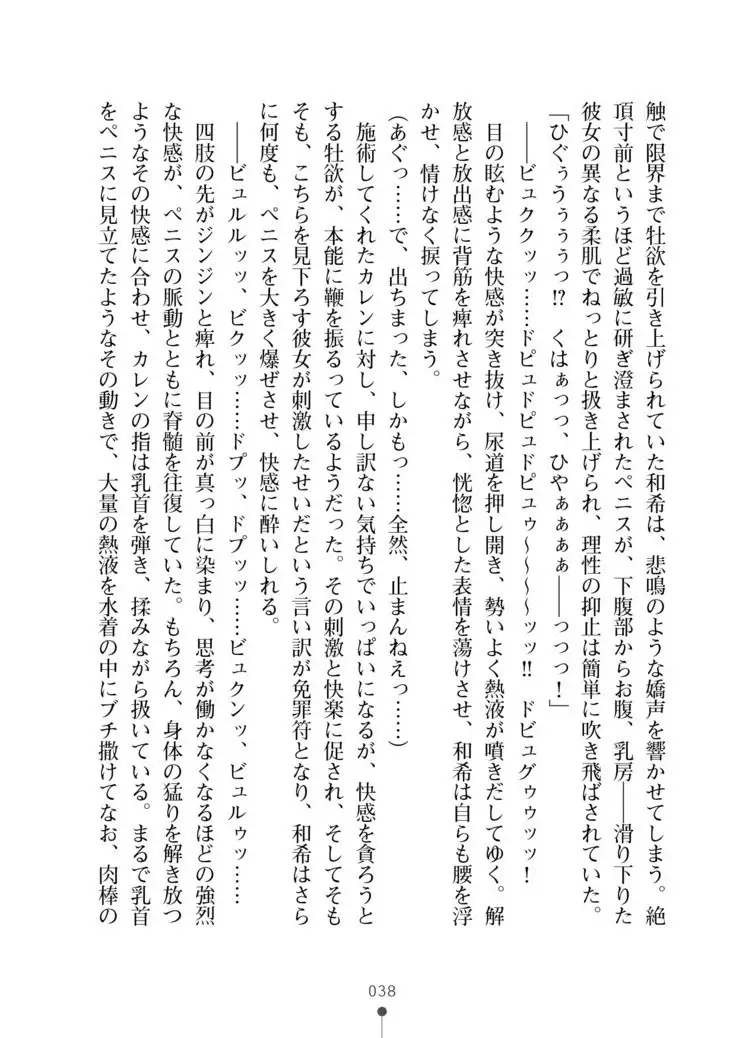 触で限界まで牡欲を引き上げられていた和希は、悲鳴のような嬌声を響かせてしまう。絶
頂寸前というほど過敏に研ぎ澄まされたペニスが、下腹部からお腹、乳房――滑り下りた
彼女の異なる柔肌でねっとりと扱き上げられ、理性の抑止は簡単に吹き飛ばされていた。
「ひぐぅうぅぅぅっ!? くはぁっっ、ひやぁぁぁぁ――っっっ！」
――ビュククッッ……ドピュドピュドピュゥ～～～～ッッ!! ドビュグゥゥッッ！
目の眩むような快感が突き抜け、尿道を押し開き、勢いよく熱液が噴きだしてゆく。解
放感と放出感に背筋を痺れさせながら、恍惚とした表情を蕩けさせ、和希は自らも腰を浮
かせ、情けなく捩ってしまう。
（あぐっ……で、出ちまった、しかもっ……全然、止まんねえっ……）
施術してくれたカレンに対し、申し訳ない気持ちでいっぱいになるが、快感を貪ろうと
する牡欲が、本能に鞭を振るっているようだった。その刺激と快楽に促され、そしてそも
そも、こちらを見下ろす彼女が刺激したせいだという言い訳が免罪符となり、和希はさら
に何度も、ペニスを大きく爆ぜさせ、快感に酔いしれる。
――ビュルルッッ、ビクッッ……ドプッ、ドプッッ……ビュクンッ、ビュルゥッ……
四肢の先がジンジンと痺れ、目の前が真っ白に染まり、思考が働かなくなるほどの強烈
な快感が、ペニスの脈動とともに脊髄を往復していた。もちろん、身体の猛りを解き放つ
ようなその快感に合わせ、カレンの指は乳首を弾き、揉みながら扱いている。まるで乳首
をペニスに見立てたようなその動きで、大量の熱液を水着の中にブチ撒けてなお、肉棒の
038